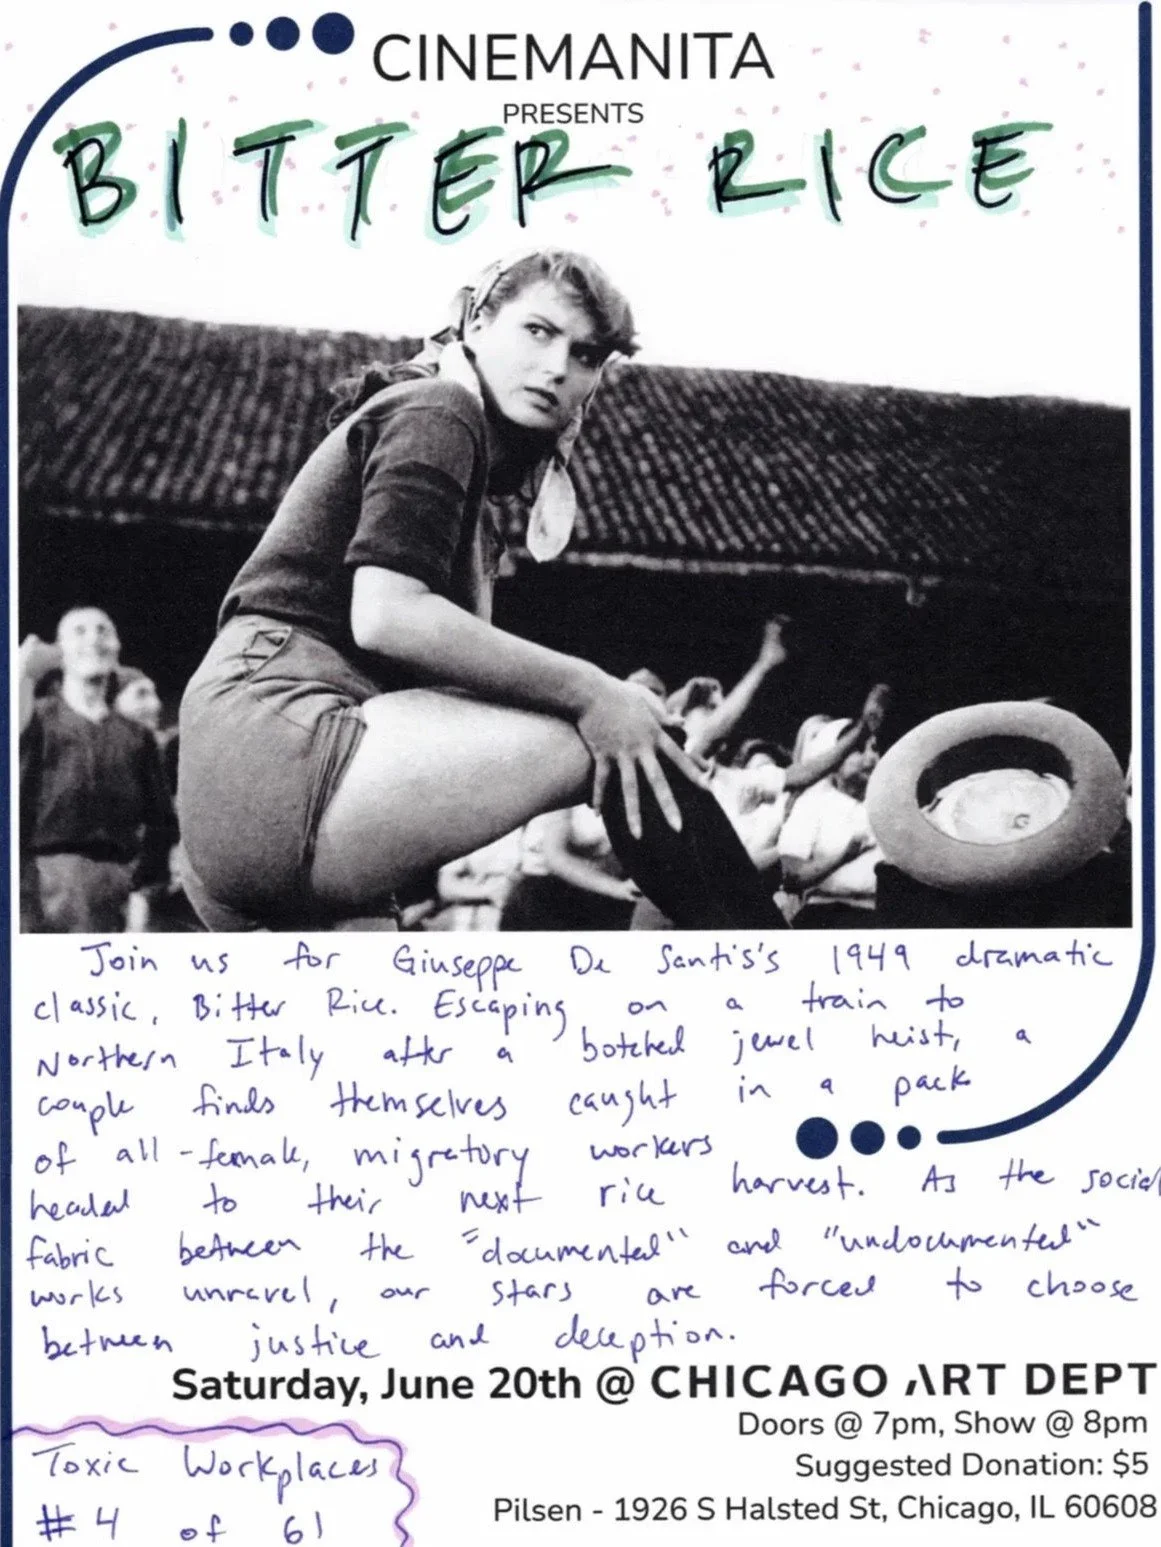 CINEMANITA
PRESENTS
BITTER RICE
Join us for Giuseppe De Santis's 1949 dramatic
classic, Bitter Rice. Escaping on a train to
Northern Italy after a botched jewel heist, a
couple finds themselves caught in a pack
of all-female, migratory workers
headed to their next rice harvest. As the social
fabric between the "documented" and "undocumented"
works unravel, our stars are forced to choose
between justice and deception.
Saturday, June 20th @ CHICAGO ART DEPT
Doors @ 7pm, Show @ 8pm
Suggested Donation: $5
Pilsen - 1926 S Halsted St, Chicago, IL 60608
Toxic Workplaces
#4 of 61